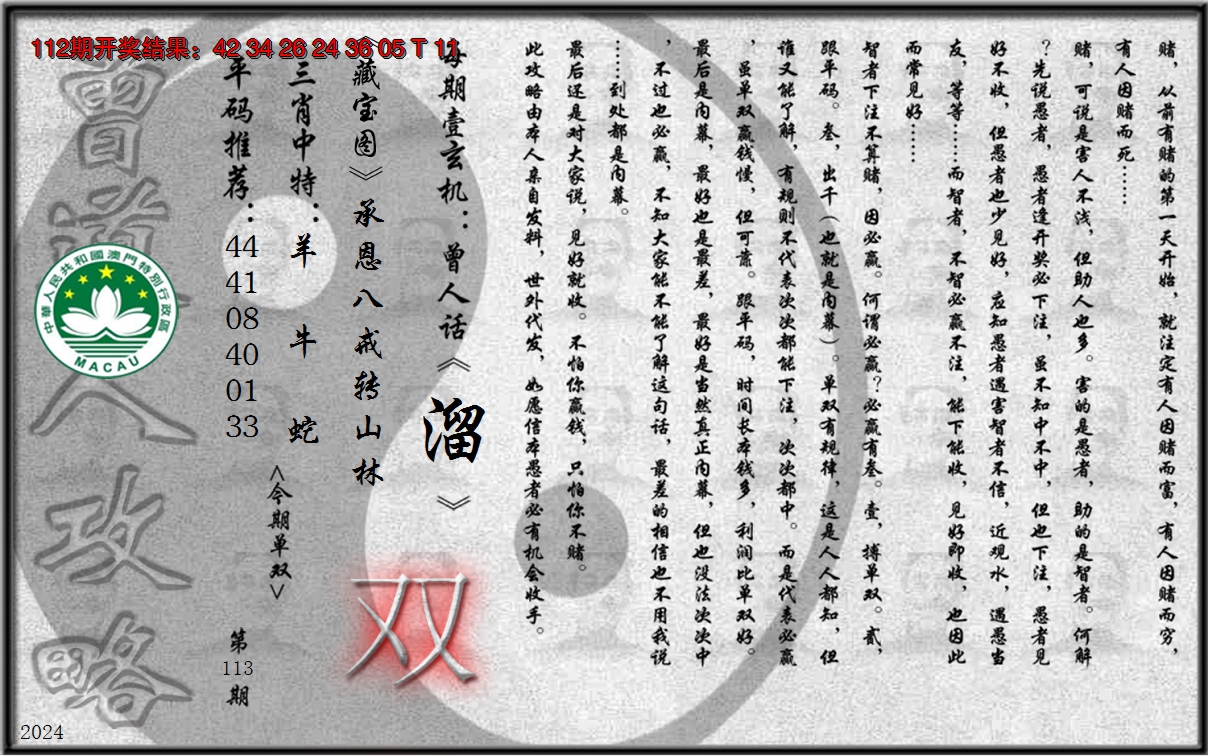 112期开奖结果：42 34 26 24 36 05 T 11
赌，从前有赌的第一天开始，就注定有人因赌而富，有人因赌而穷，
有人因赌而死……
赌，可说是害人不浅，但助人也多。害的是愚者，助的是智者。何解
？先说愚者，愚者逢开奖必下注，虽不知中不中，但也下注，愚者见
好不收，但愚者也少见好，应知愚者遇害智者不信，近观水，遇愚当
友，等等……而智者，不智必赢不注，能下能收，见好即收，也因此
而常见好……
智者下注不算赌，因必赢。何谓必赢？必赢有叁。壹，搏单双。贰，
跟平码。叁，出千（也就是内幕）。单双有规律，这是人人都知，但
谁又能了解，有规则不代表次次都能下注，次次都中。而是代表必赢
，虽单双赢钱慢，但可靠。跟平码，时间长本钱多，利润比单双好。
最后是内幕，最好也是最差，最好是当然真正内幕，但也没法次次中
，不过也必赢，不知大家能不能了解这句话，最差的相信也不用我说
……到处都是内幕。
最后还是对大家说，见好就收。不怕你赢钱，只怕你不赌。
此攻略由本人亲自发料，世外代发，如愿信本愚者必有机会收手。
每期壹玄机：曾人话《溜》
《藏宝图》承恩八戒转山林
双
三肖中特：羊 牛 蛇
<今期单双>
平码推荐：44 41 08 40 01 33
第113期
曾道人攻略
中華人民共和國澳門特別行政區
MACAU
2024